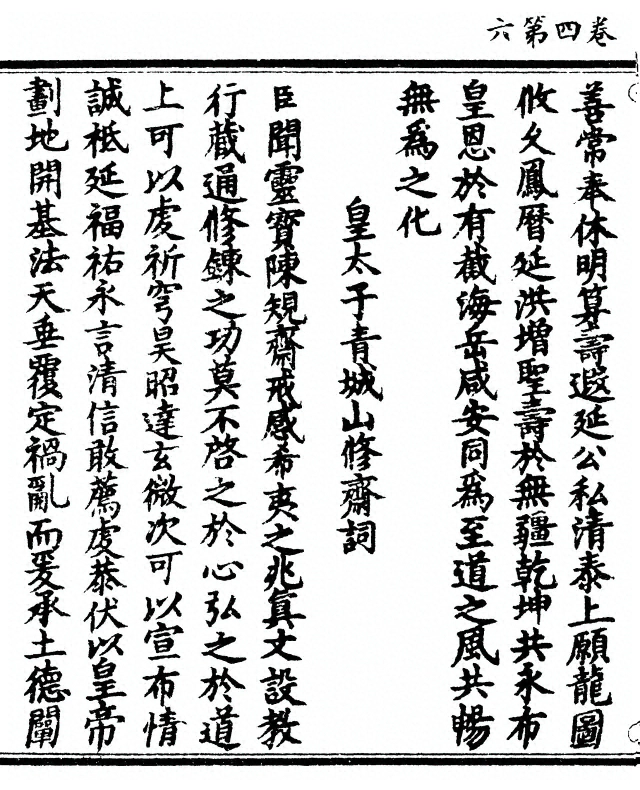 卷四第六
善常奉休明算壽遐延公私清泰上願龍圖
攸久鳳曆延洪增聖壽於無疆乾坤共永布
皇恩於有截海岳咸安同爲至道之風共暢
無爲之化
皇太子青城山修齋詞
臣聞靈寶陳規齋戒感希夷之兆真文設教
行藏通修鍊之功莫不啓之於心弘之於道
上可以虔祈穹昊昭達玄微次可以宣布情
誠祗延福祐永言清信敢薦虔恭伏以皇帝
劃地開基法天垂覆定禍亂而爰承土德闡